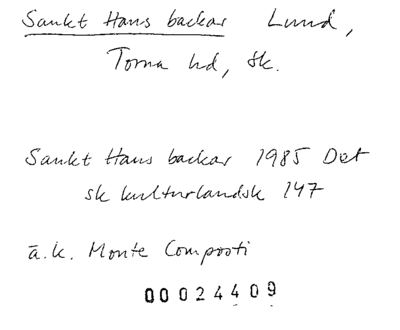 Sankt Hans backar Lund,
Torna hd, Sk.
Sankt Hans backar 1985 Det
sk kulturlandsk 147
ä.k. Monte Composti
00024409